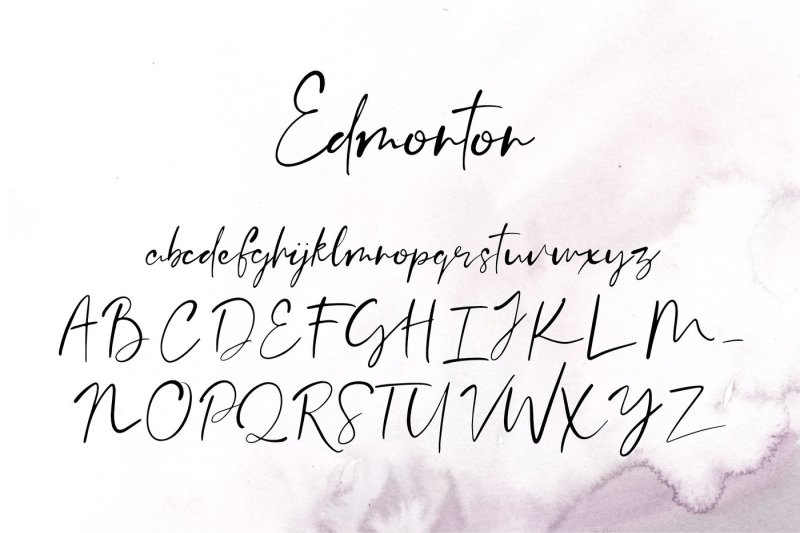 Edmonton
abcdefghijklmnopqrstuvwxyz
ABCDEFGHIJKLM-
NOPQRSTUVWXYZ